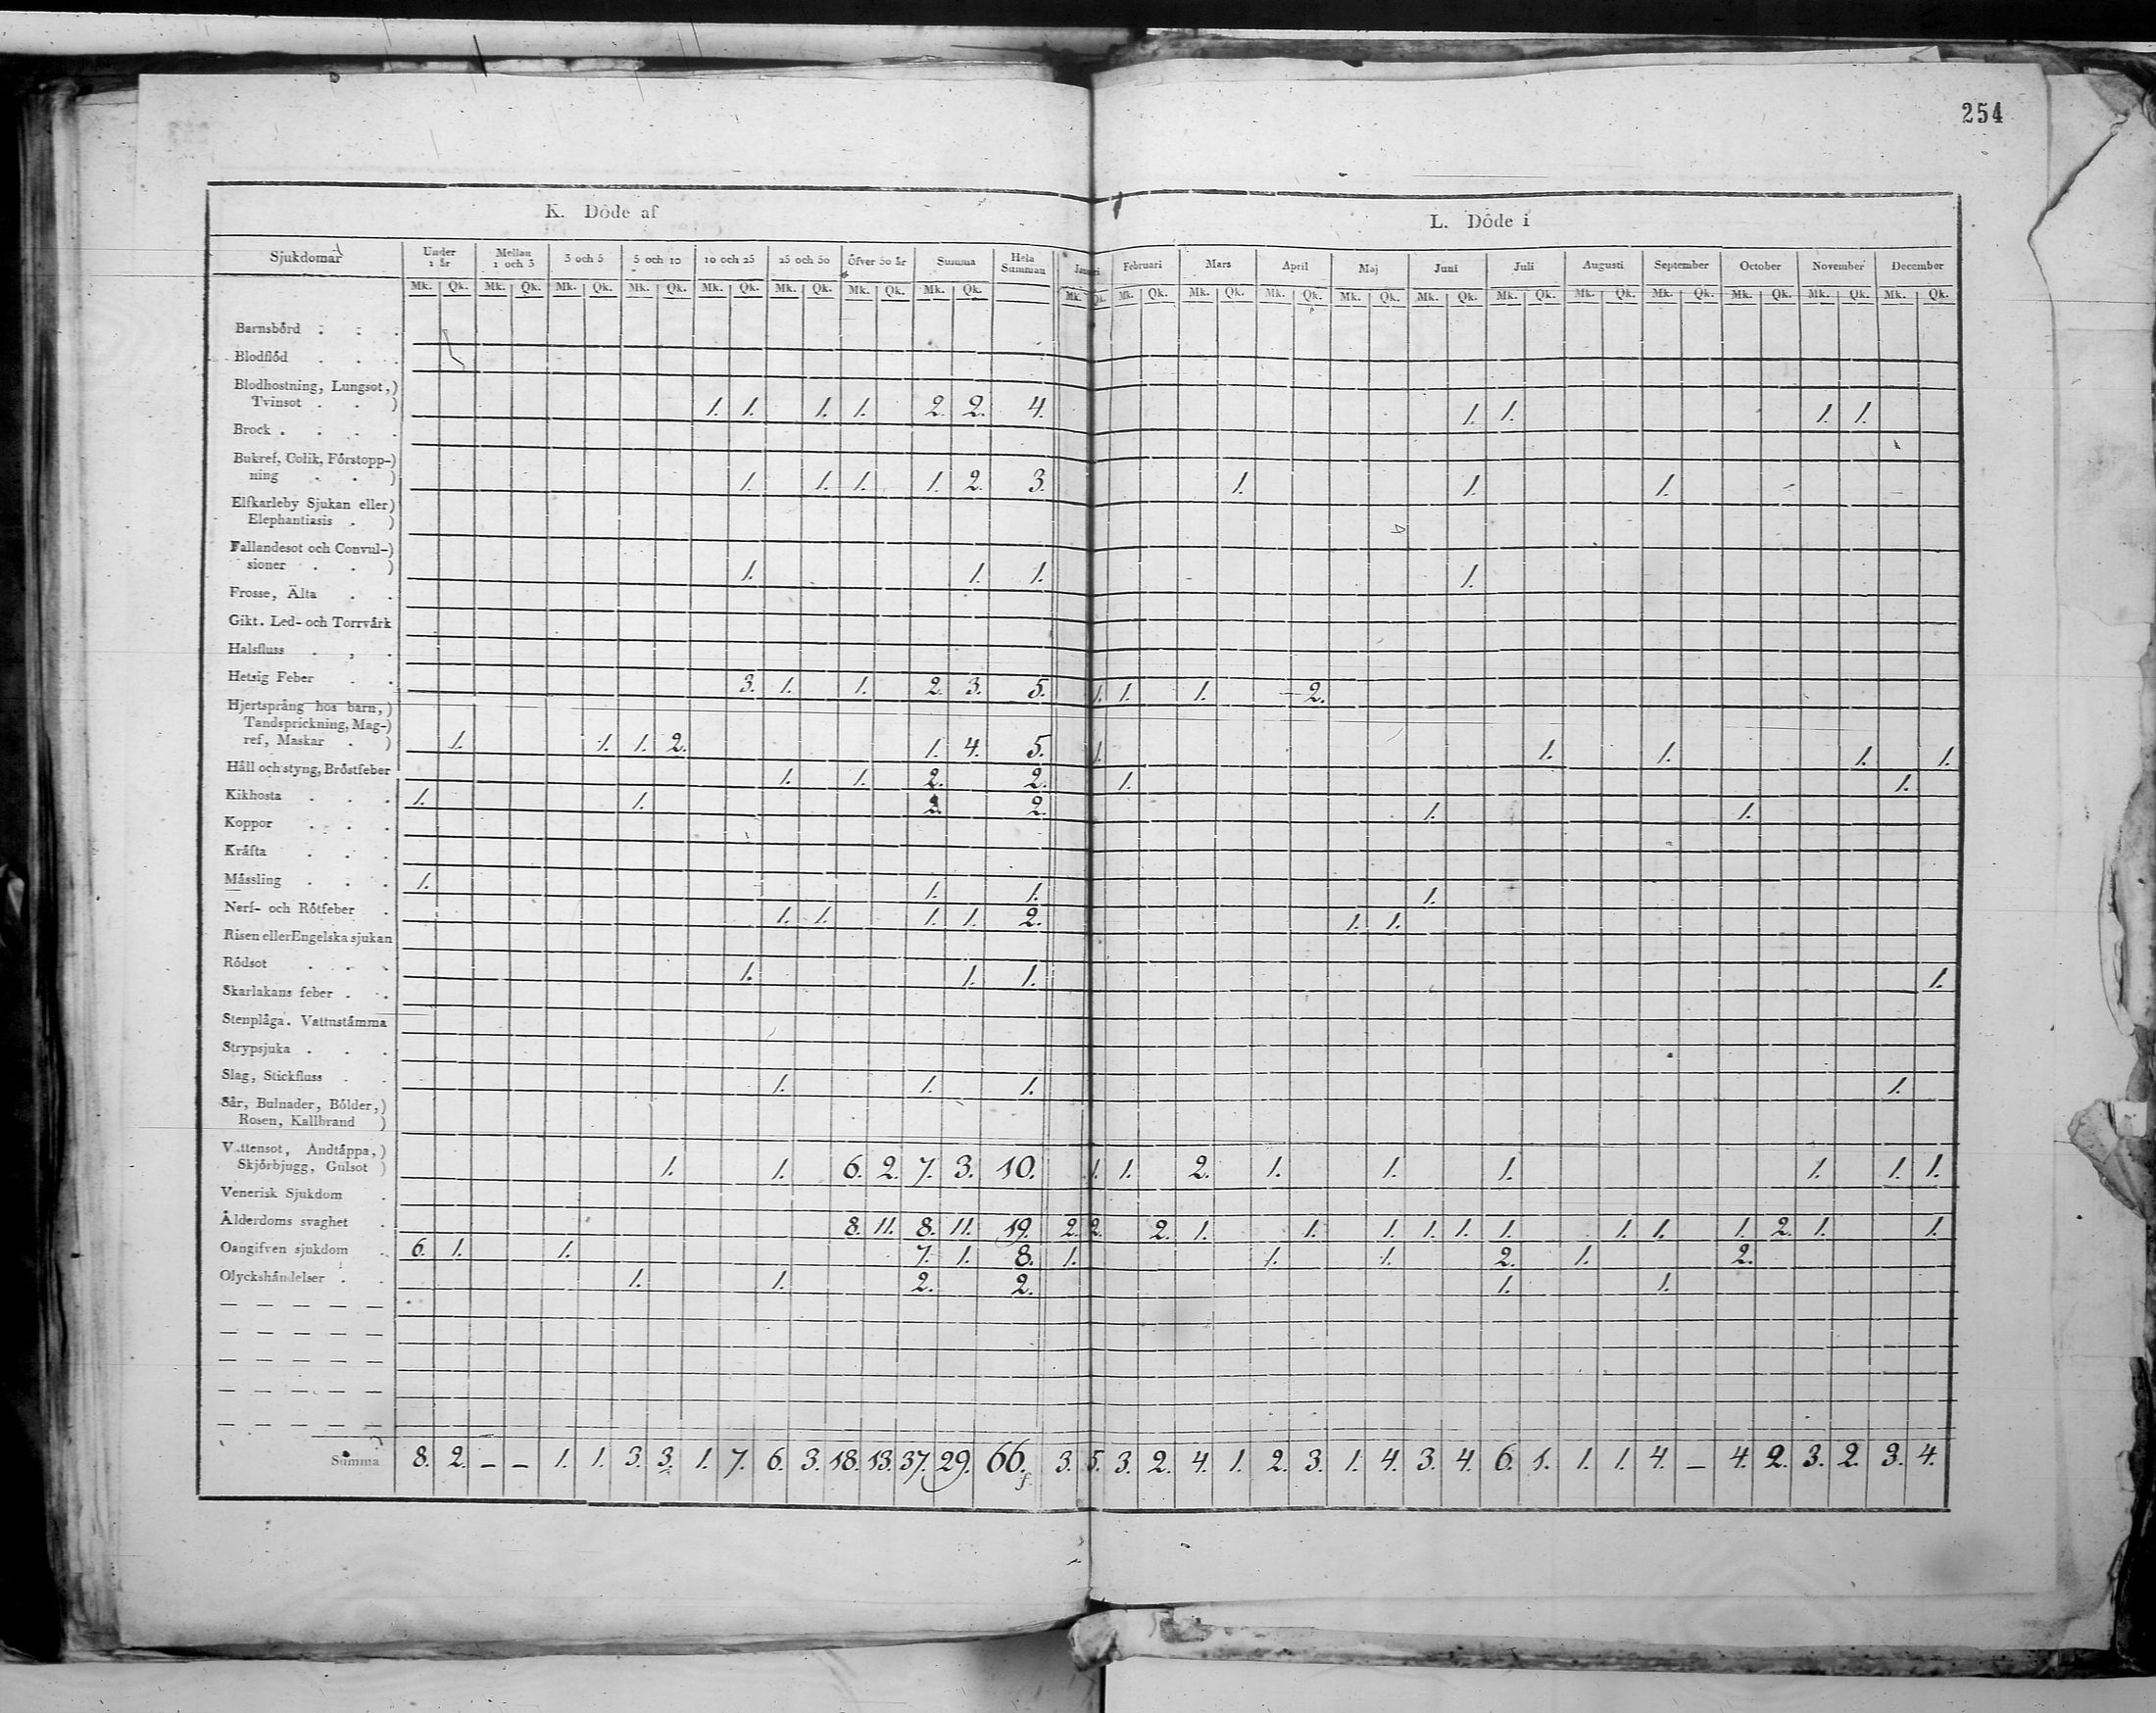 254
K. Döde af L. Döde i
Sjukdomar Under 1 år Mellan 1 och 3 3 och 5 5 och 10 10 och 25 25 och 50 öfver 50 år Summa Hela Summan Februari Mars April Maj Juni Juli Augusti September October November December
Mk. Qk. Mk. Qk. Mk. Qk. Mk. Qk. Mk. Qk. Mk. Qk. Mk. Qk. Mk. Qk. Mk. Qk. Mk. Qk. Mk. Qk. Mk. Qk. Mk. Qk. Mk. Qk. Mk. Qk. Mk. Qk. Mk. Qk. Mk. Qk. Mk. Qk. Mk. Qk.
Barnsbörd . . .
Blodflöd . . .
Blodhostning, Lungsot,)
Tvinsot . . ) 1. 1. 1. 1. 2. 2. 4. 1. 1. 1. 1.
Brock . . . .
Bukref, Colik, Förstopp-)
ning . . ) 1. 1. 1. 1. 2. 3. 1. 1. 1.
Elfkarleby Sjukan eller)
Elephantiasis . )
Fallandesot och Convul-)
sioner . . ) 1. 1. 1. 1.
Frosse, Älta . .
Gikt. Led- och Torrvärk
Halsfluss . , .
Hetsig Feber . . 3. 1. 1. 2. 3. 5. 1. 1. 1. 2.
Hjertsprång hos barn, )
Tandsprickning, Mag-)
ref, Maskar . ) 1. 1. 1. 2. 1. 4. 5. 1. 1. 1. 1. 1.
Håll och styng, Bröstfeber 1. 1. 2. 2. 1. 1.
Kikhosta . . . 1. 1. 2. 2. 1. 1.
Koppor . . .
Kräfta . . .
Mässling . . . 1. 1. 1. 1.
Nerf- och Rötfeber . 1. 1. 1. 1. 2. 1. 1.
Risen eller Engelska sjukan
Rödsot . . . 1. 1. 1. 1.
Skarlakans feber . .
Stenplåga. Vattustämma
Strypsjuka . . .
Slag, Stickfluss . . 1. 1. 1. 1.
Sår, Bulnader, Bölder,)
Rosen, Kallbrand )
Vattensot, Andtäppa,)
Skjörbjugg, Gulsot ) 1. 1. 6. 2. 7. 3. 10. 1. 1. 2. 1. 1. 1. 1. 1. 1.
Venerisk Sjukdom .
Ålderdoms svaghet . 8. 11. 8. 11. 19. 2. 2. 2. 1. 1. 1. 1. 1. 1. 1. 1. 1. 2. 1. 1.
Oangifven sjukdom . 6. 1. 1. 7. 1. 8. 1. 1. 1. 2. 1. 2.
Olyckshändelser . . 1. 1. 2. 2. 1. 1.
— — — — —
— — — — —
— — — — —
— — — — —
— — — — —
Summa 8. 2. – – 1. 1. 3. 3. 1. 7. 6. 3. 18. 13. 37. 29. 66. 3. 5. 3. 2. 4. 1. 2. 3. 1. 4. 3. 4. 6. 1. 1. 1. 4. – 4. 2. 3. 2. 3. 4.